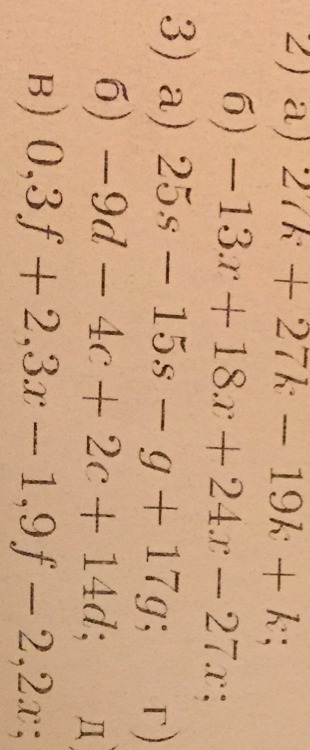 2) а) 27k + 27k − 19k + k;
б) −13x + 18x + 24x − 27x;
3) а) 25s − 15s − g + 17g; г)
б) −9d − 4c + 2c + 14d; д)
в) 0,3f + 2,3x − 1,9f − 2,2x;